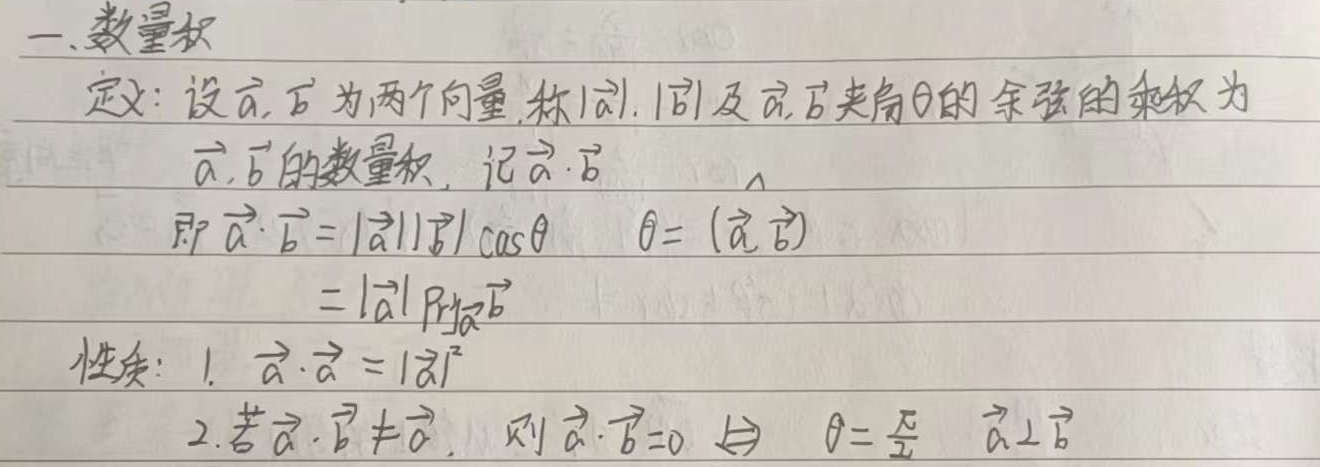 一、数量积
定义: 设 a⃗, b⃗ 为两个向量, 称|a⃗|, |b⃗| 及 a⃗, b⃗ 夹角θ的 余弦的乘积为
a⃗, b⃗ 的数量积, 记 a⃗·b⃗
即 a⃗·b⃗ = |a⃗||b⃗| cosθ θ = (a⃗,^ b⃗)
= |a⃗| Prj_a⃗ b⃗
性质: 1. a⃗·a⃗ = |a⃗|²
2. 若 a⃗·b⃗ ≠ o⃗, 则 a⃗·b⃗=0 ⇔ θ = π/2 a⃗⊥b⃗